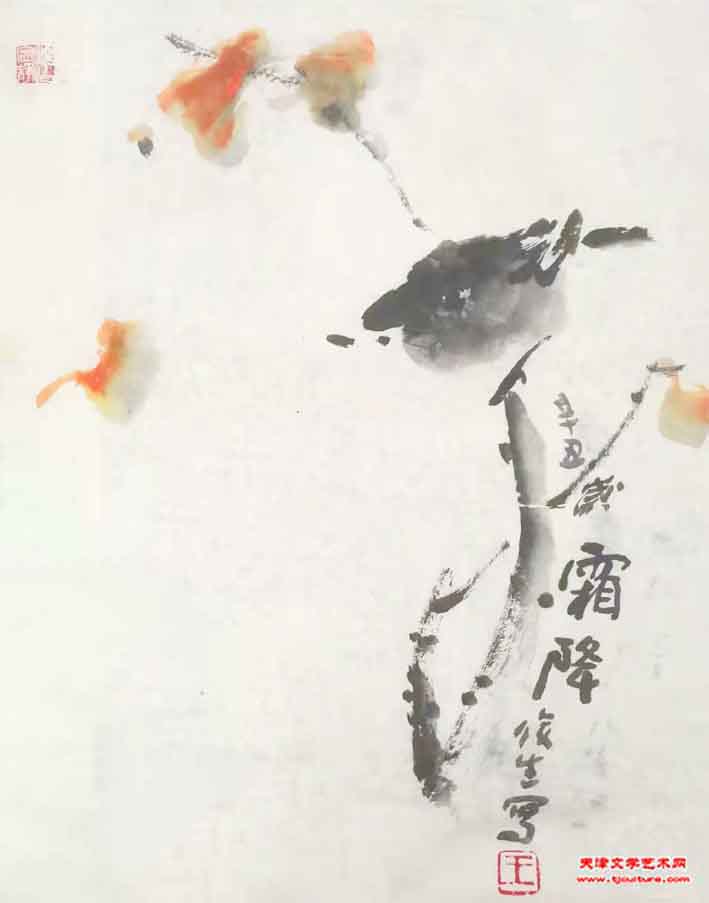 辛丑
歲
霜降
俊生
寫
王
天津文学艺术网
www.tjculture.com